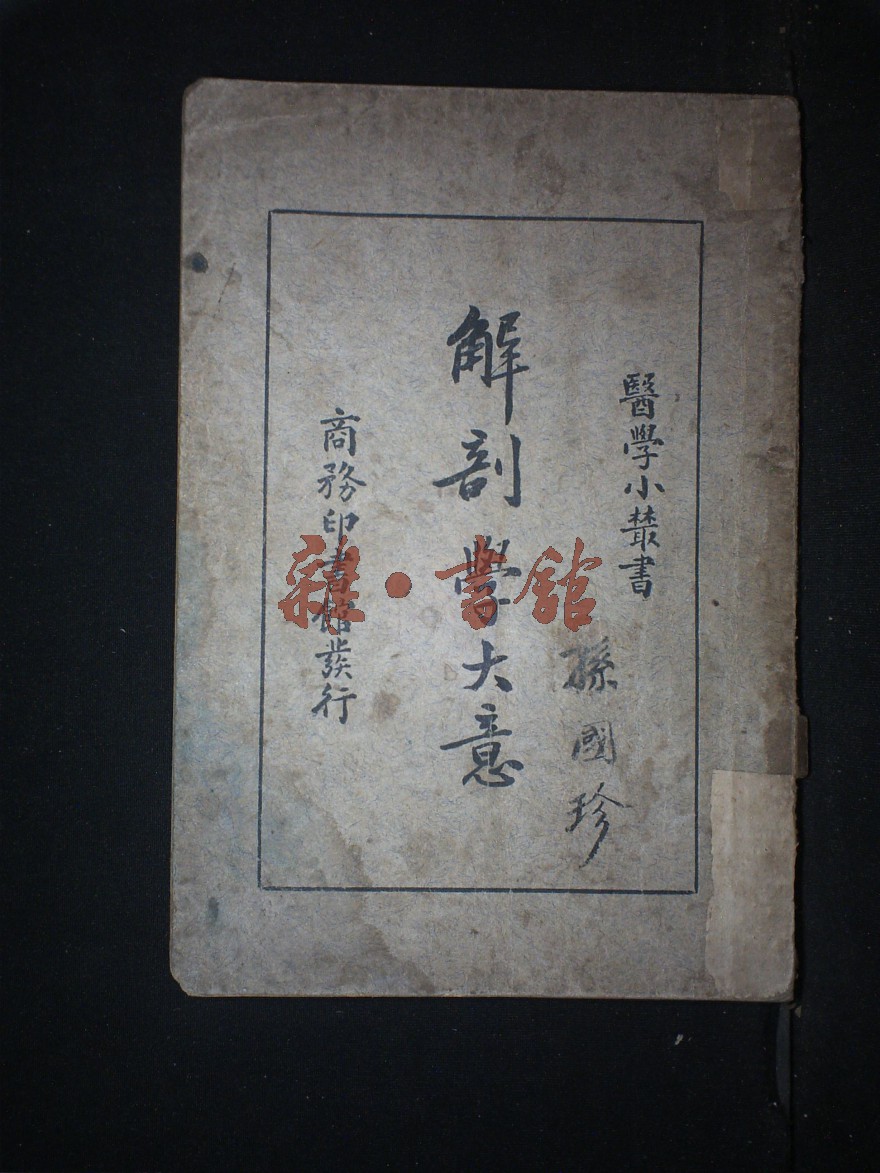 醫學小叢書
孫國珍
解剖學大意
商務印書館發行
雜·書館